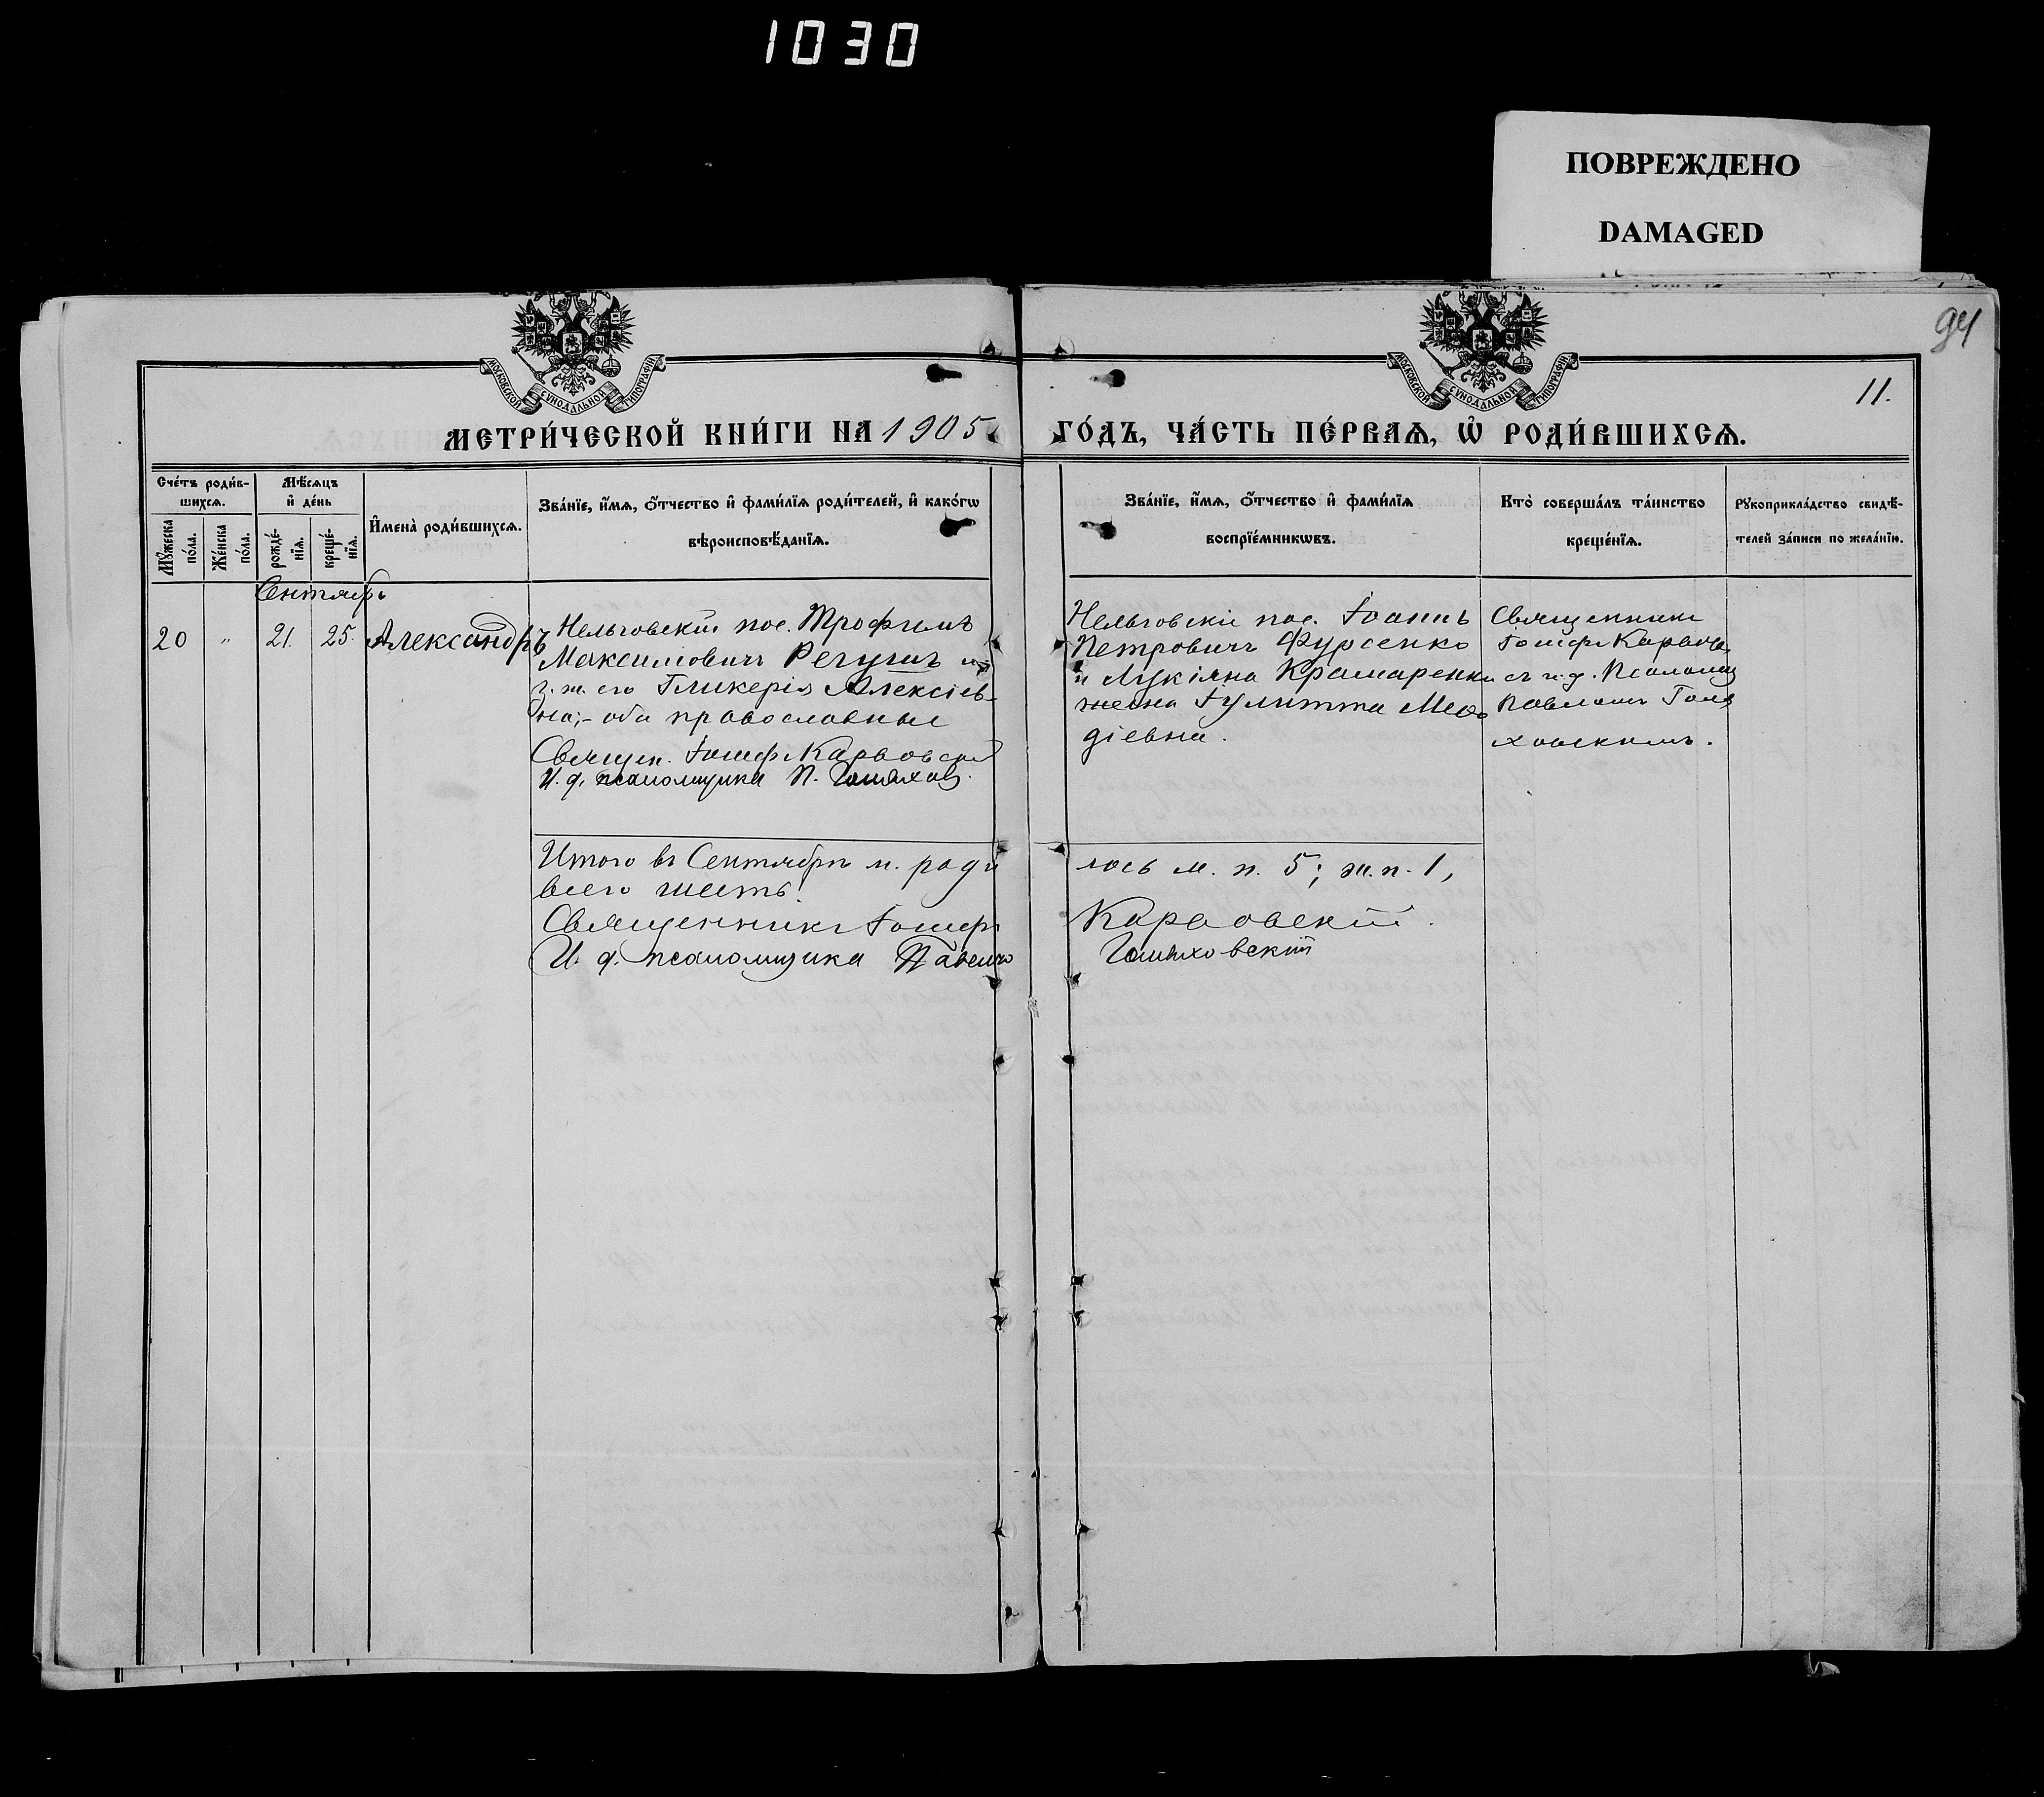 1030
ПОВРЕЖДЕНО
DAMAGED
94
11.
МОСКОВСКОЙ СѴНОДАЛЬНОЙ ТИПОГРАФІИ
МОСКОВСКОЙ СѴНОДАЛЬНОЙ ТИПОГРАФІИ
МЕТРИ́ЧЕСКОЙ КНИ́ГИ НА 1905 ГО́ДЪ, ЧА́СТЬ ПЕ́РВАѦ, Ѽ РОДИ́ВШИХСѦ.
Сче́тъ роди́в-
шихсѧ.
Мѣ́сѧцъ
и҆ де́нь
Мꙋ́жеска
по́ла.
Же́нска
по́ла.
рожде́-
нїѧ.
креще́-
нїѧ.
И҆мена̀ роди́вшихсѧ.
Зва́нїе, и҆́мѧ, ѻ҆́тчество и҆ фами́лїѧ роди́телей, и҆ како́гѡ
вѣроисповѣ́данїѧ.
Зва́нїе, и҆́мѧ, ѻ҆́тчество и҆ фами́лїѧ
воспрїе́мникѡвъ.
Кто̀ соверша́лъ та́инство
креще́нїѧ.
Рꙋкоприкла́дство свидѣ́-
телей за́писи по жела́нїю.
Сентябрь
20 " 21. 25. Александръ
Нельговскій пос. Трофимъ
Максимовичъ и
з. ж. его Гликерія Алексіев-
на; – оба православные
Священ. Іосифъ Карвовскій
И. д. псаломщика П.
Нельговскій пос. Іоаннъ
Петровичъ Фурсенко
и Лукіяна Крамаренки
жена Іулитта Мео
діевна.
Священникъ
Іосифъ Карвов
съ и. д. Псаломщ
Павломъ
ховскимъ.
Итого въ Сентябрѣ м. роди лось м. п. 5; ж. п. 1,
всего шесть.
Священникъ Іосифъ Карвовскій.
И. д. псаломщика Павелъ